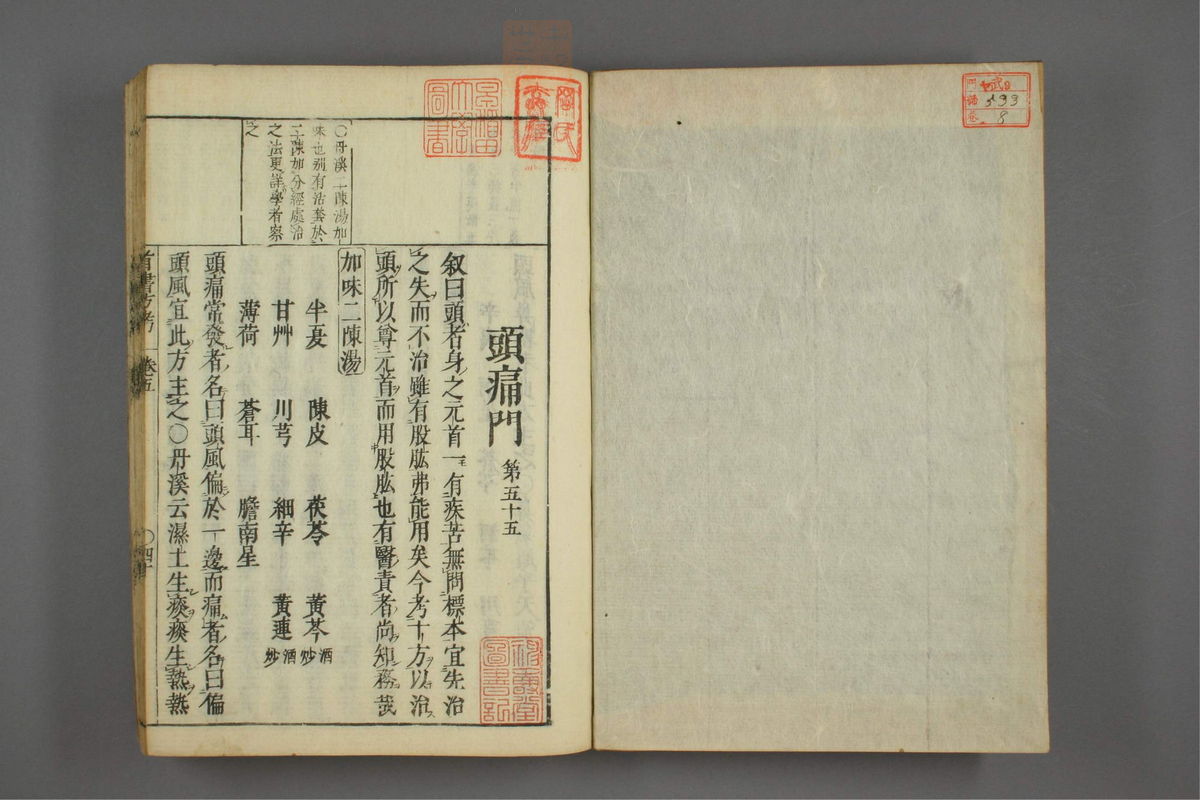 頭痛門 第五十五
叙曰頭者身之元首一有疾苦無問標本宜先治
之失而不治雖有股肱弗能用矣今考十方以治
頭所以尊元首而用股肱也有醫責者尚知務哉
加味二陳湯
半夏 陳皮 茯苓 黃芩酒炒
甘艸 川芎 細辛 黃連酒炒
薄荷 蒼耳 膽南星
頭痛常發者名曰頭風偏於一邊而痛者名曰偏
頭風宜此方主之〇丹溪云濕土生痰痰生熱熱
〇丹溪二陳湯加
味也別有活套於
二陳加分經處治
之法更詳學者察
之
卷五
533
8